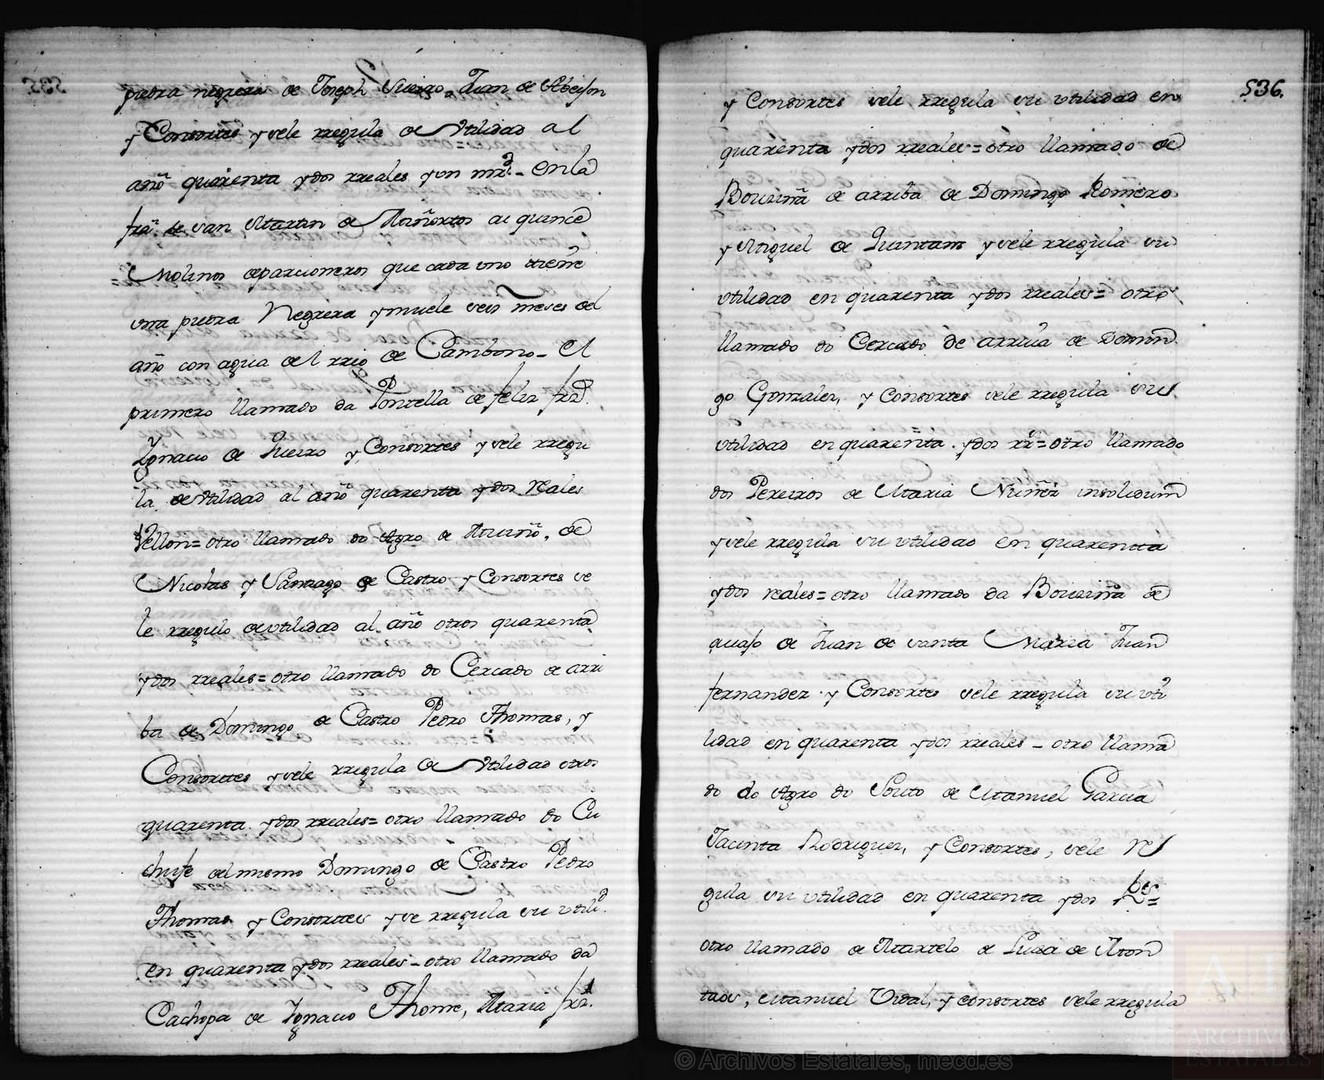 piedra negrera de Joseph Sueiro = Juan de Abeijon
y Consortes y sele rregula de Utilidad al
año quarenta y dos rreales y un mrs. - en la
fra. de san Martin de Moiñortos ai quince
Molinos departioneros que cada uno tiene
una piedra Negrera y muele seis meses del
año con agua del rrio de Cambono - el
primero llamado da Pontella de felix frz.
Ygnacio de Pueiro y Consortes y sele rregu
la de Utilidad al año quarenta y dos reales
Vellon = otro llamado do Agro de Mouriño, de
Nicolas y Santiago de Castro y Consortes se
le rregulo de utilidad al año otros quarenta
y dos rreales = otro llamado do Cercado de arri
ba de Domingo de Castro Pedro Thomas, y
Consortes y sele rregula de Utilidad otros
quarenta y dos rreales = otro llamado do Cu
chufe del mismo Domingo de Castro Pedro
Thomas y Consortes y se rregula su utili.d
en quarenta y dos rreales - otro llamado da
Cachopa de Ygnacio Thome, Maria frz.
536.
y Consortes sele rregula su utilidad en
quarenta y dos rreales = otro llamado de
Bouzina de arriba de Domingo Romero
y Miguel de Quintans y sele rregula su
utilidad en quarenta y dos rreales = otro
llamado do Cercado de arriva de Domin
go Gonzalez, y Consortes sele rregula sus
utilidad en quarenta y dos rrs = otro llamado
dos Pereiros de Maria Nuñez insolidum
y sele rregula su utilidad en quarenta
y dos reales = otro llamado da Bouzina de
quajo de Juan de santa Maria Juan
fernandez y Consortes sele rregula su uti
lidad en quarenta y dos rreales - otro llama
do do Agro do Souto de Manuel Garcia
Jacinta Rodriguez, y Consortes, sele rre
gula su utilidad en quarenta y dos Rs =
otro llamado de Martelo de Lucas de Mon
taos, Manuel Vidal, y consortes sele rregula
© Archivos Estatales, mecd.es
ARCHIVOS
ESTATALES